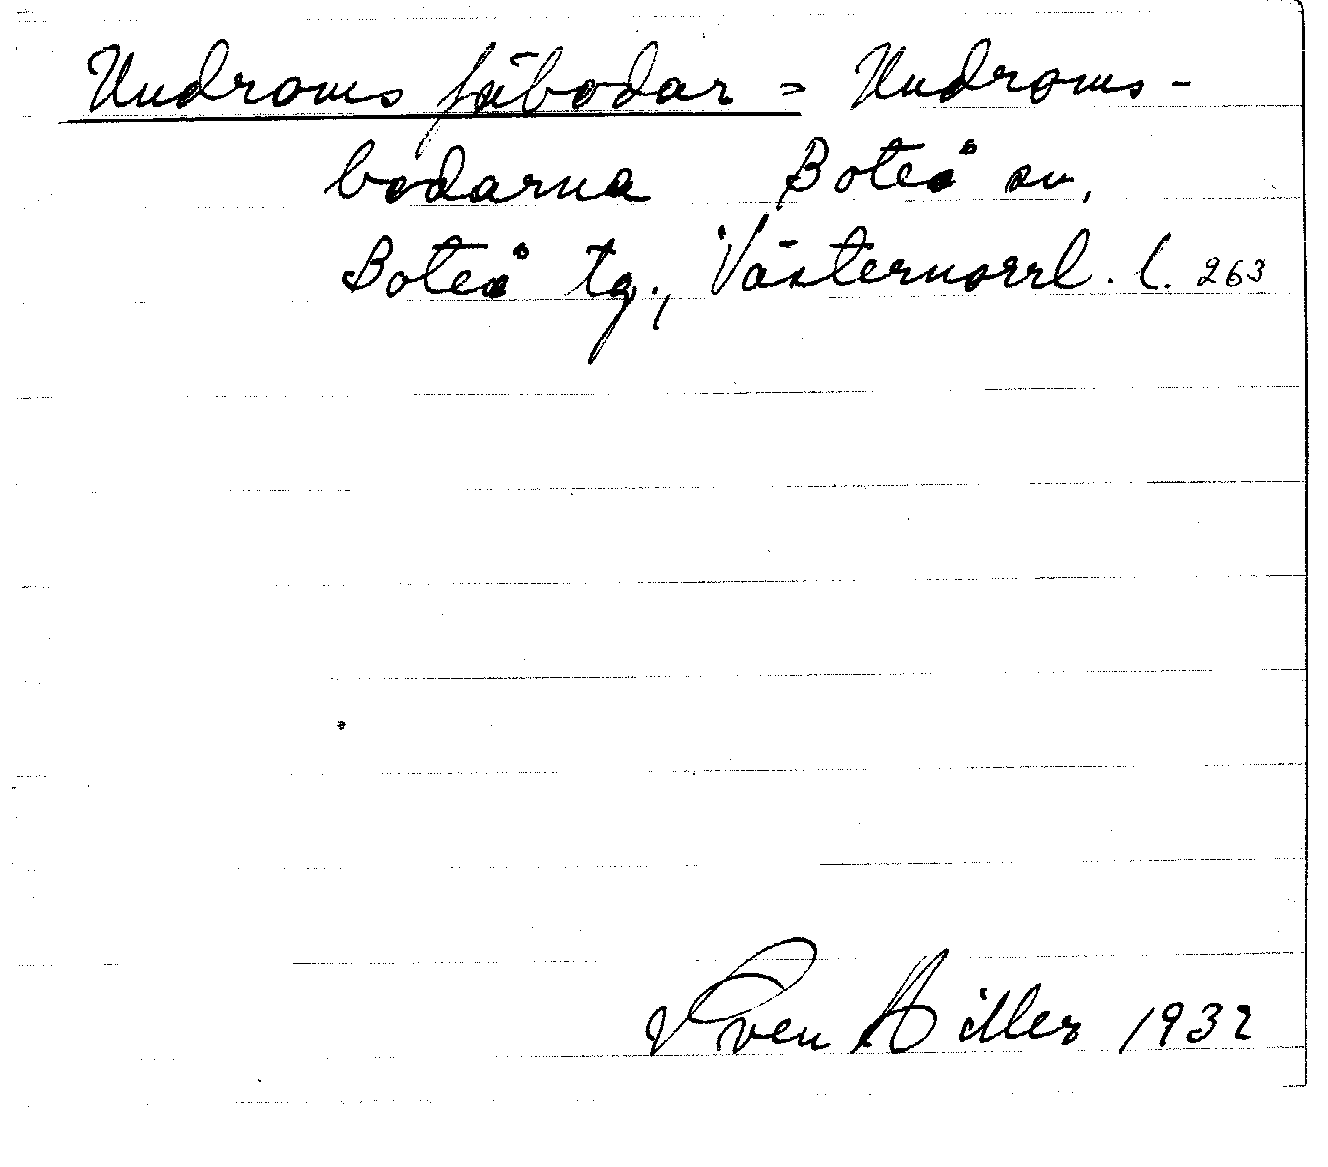 Undroms fäbodar = Undroms-
bodarna Boteå sn,
Boteå tg., Västernorrl. l. 263
Sven Hiller 1932